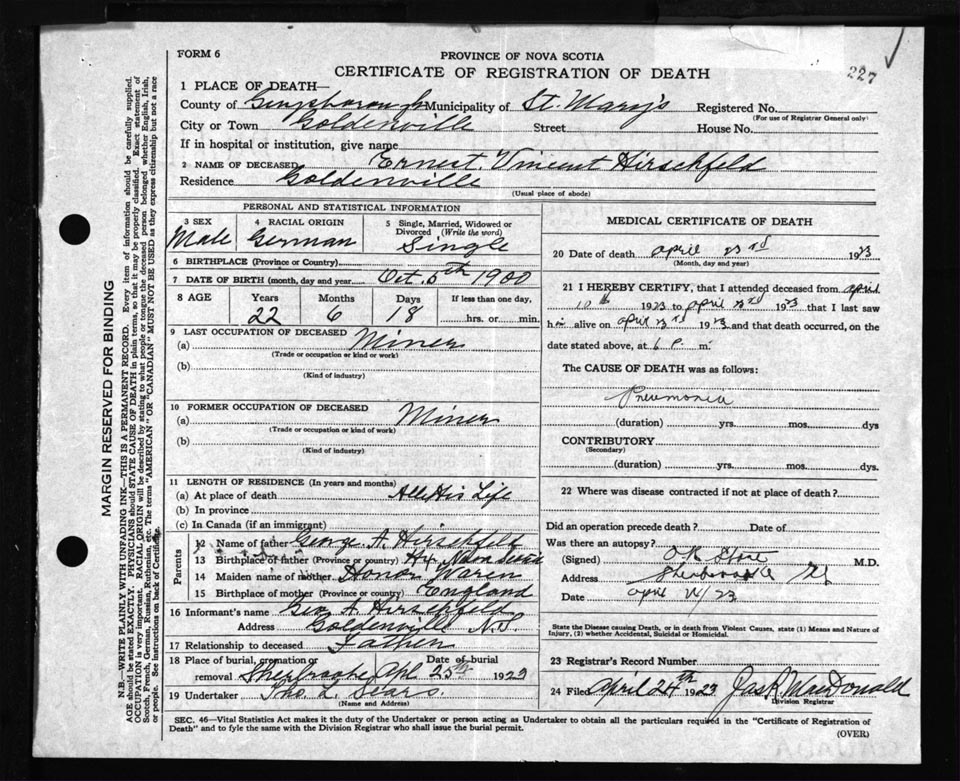 FORM 6
PROVINCE OF NOVA SCOTIA
CERTIFICATE OF REGISTRATION OF DEATH
227
1 PLACE OF DEATH—
County of Guysborough Municipality of St. Mary's Registered No.
(For use of Registrar General only)
City or Town Goldenville Street House No.
If in hospital or institution, give name
2 NAME OF DECEASED Ernest Vincent Hirschfeld
Residence Goldenville
(Usual place of abode)
PERSONAL AND STATISTICAL INFORMATION
3 SEX 4 RACIAL ORIGIN 5 Single, Married, Widowed or Divorced (Write the word)
Male German Single
6 BIRTHPLACE (Province or Country)
7 DATE OF BIRTH (month, day and year) Oct. 5th 1900
8 AGE Years Months Days If less than one day,
22 6 18 hrs. or min.
9 LAST OCCUPATION OF DECEASED
(a) Miner
(Trade or occupation or kind or work)
(b)
(Kind of industry)
10 FORMER OCCUPATION OF DECEASED
(a) Miner
(Trade or occupation or kind of work)
(b)
(Kind of industry)
11 LENGTH OF RESIDENCE (In years and months)
(a) At place of death All His Life
(b) In province
(c) In Canada (if an immigrant)
Parents
12 Name of father George A. Hirschfeld
13 Birthplace of father (Province or country) Nova Scotia
14 Maiden name of mother. Honor Waren
15 Birthplace of mother (Province or country) England
16 Informant's name Geo. A. Hirschfeld
Address Goldenville N.S.
17 Relationship to deceased Father
18 Place of burial, cremation or removal Sherbrooke Date of burial Apl 25th 1923
19 Undertaker Tho. L. Sears
(Name and Address)
MEDICAL CERTIFICATE OF DEATH
20 Date of death april 23rd 1923
(Month, day and year)
21 I HEREBY CERTIFY, that I attended deceased from april
10th 1923 to april 23rd 1923 that I last saw
him alive on april 23rd 1923 and that death occurred, on the
date stated above, at 6 P. m.
The CAUSE OF DEATH was as follows:
Pneumonia
(duration) yrs. mos. dys
CONTRIBUTORY
(Secondary)
(duration) yrs. mos. dys.
22 Where was disease contracted if not at place of death?
Did an operation precede death? Date of
Was there an autopsy?
(Signed) M.D.
Address Sherbrooke
Date april /23
State the Disease causing Death, or in death from Violent Causes, state (1) Means and Nature of
Injury, (2) whether Accidental, Suicidal or Homicidal.
23 Registrar's Record Number
24 Filed April 24th 1923 Jas. R. MacDonald
Division Registrar
SEC. 46—Vital Statistics Act makes it the duty of the Undertaker or person acting as Undertaker to obtain all the particulars required in the "Certificate of Registration of
Death" and to fyle the same with the Division Registrar who shall issue the burial permit.
(OVER)
MARGIN RESERVED FOR BINDING
N.B.—WRITE PLAINLY WITH UNFADING INK—THIS IS A PERMANENT RECORD. Every item of information should be carefully supplied.
AGE should be stated EXACTLY. PHYSICIANS should STATE CAUSE OF DEATH in plain terms, so that it may be properly classified. Exact statement of
OCCUPATION is very important. RACIAL ORIGIN will be described by stating to what people or tongue the deceased person belonged whether English, Irish,
Scotch, French, German, Russian, Ruthenian, etc. The terms "AMERICAN" OR "CANADIAN" MUST NOT BE USED as they express citizenship but not a race
or people. See instructions on back of Certificate.